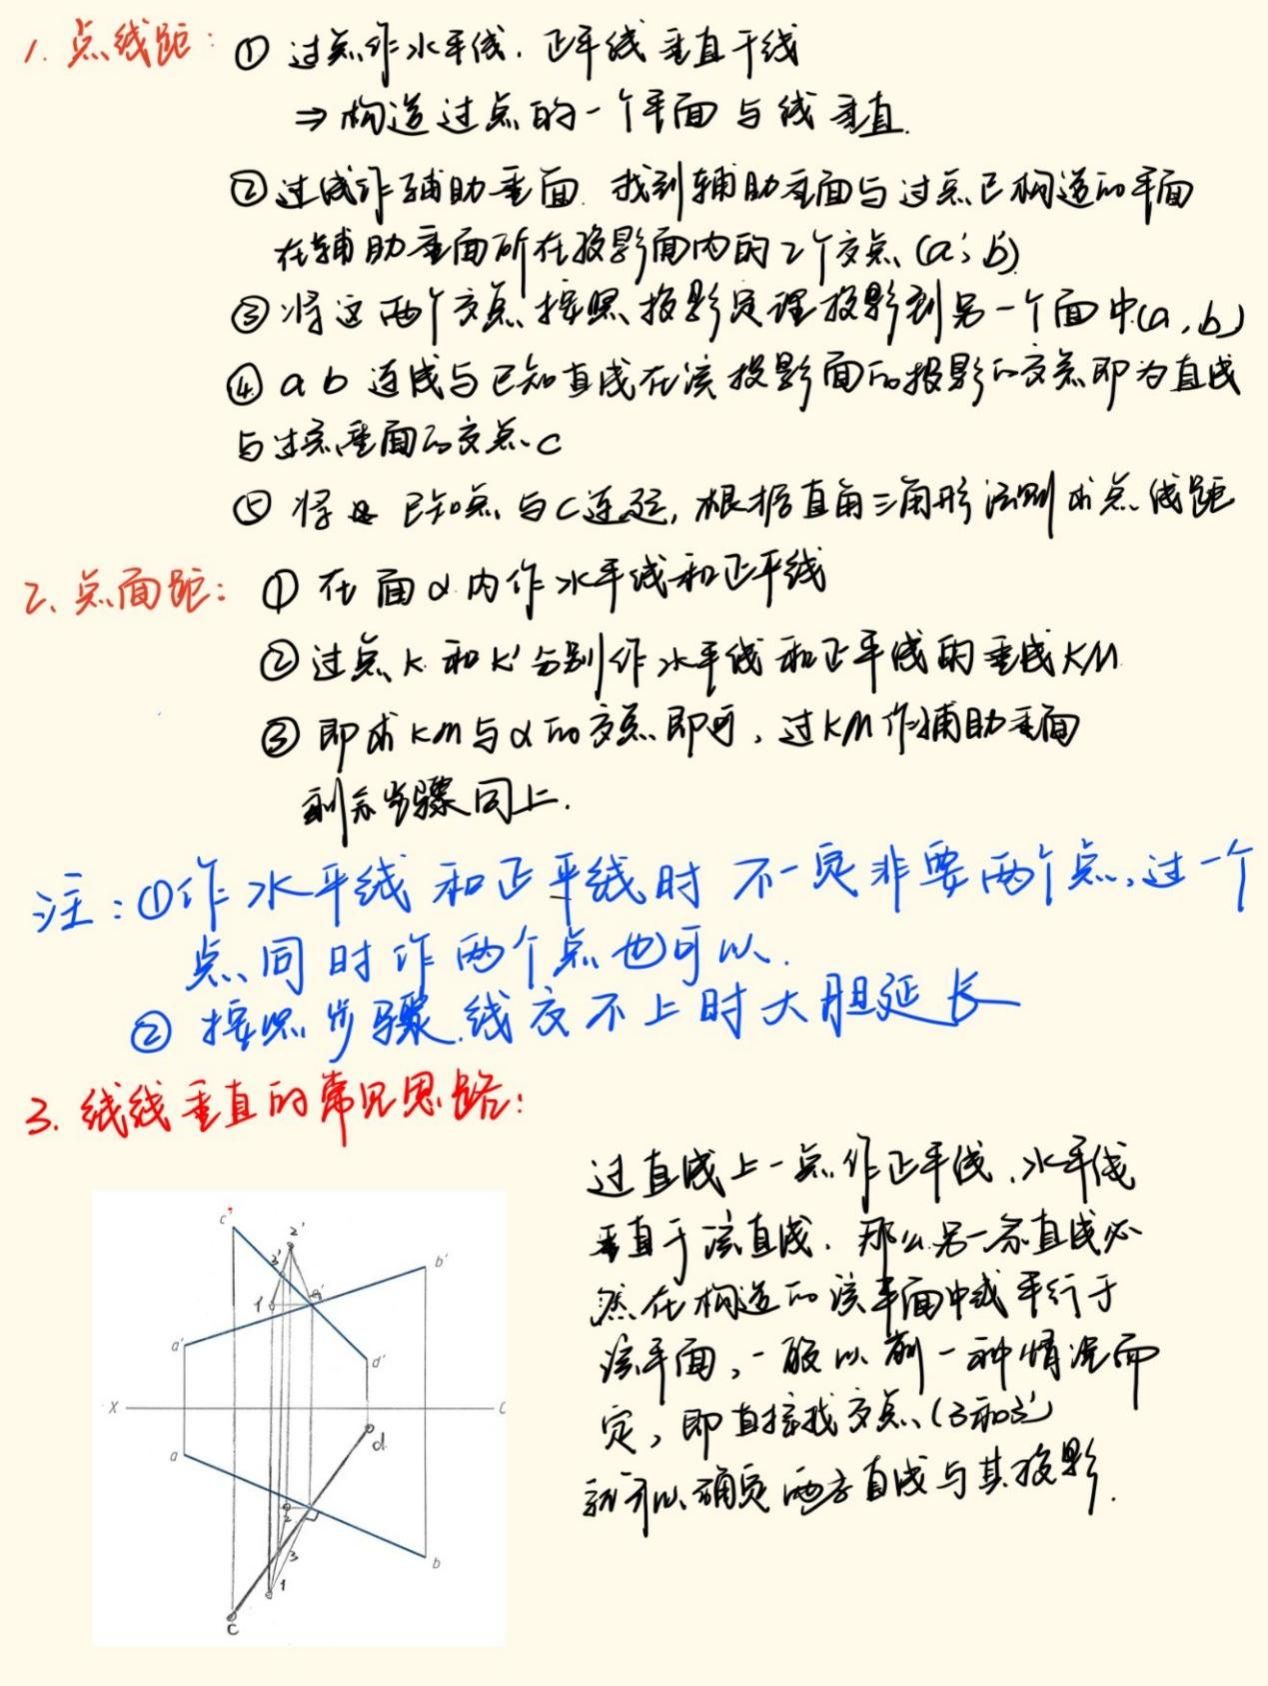 1. 点线距: ① 过点作水平线. 正平线垂直于线
⇒ 构造过点的一个平面与线垂直.
② 过线作辅助垂面. 找到辅助垂面与过点已构造的平面
在辅助垂面所在投影面内的2个交点 (a', b')
③ 将这两个交点按照投影定理投影到另一个面中(a, b)
④ a b 连线与已知直线在该投影面的投影的交点即为直线
与过点垂面的交点c
⑤ 将 已知点与C连起, 根据直角三角形法则求点线距
2. 点面距: ① 在面α内作水平线和正平线
② 过点K和K'分别作水平线和正平线的垂线KM
③ 即求KM与α的交点即可, 过KM作辅助垂面
剩余步骤同上.
注: ① 作水平线和正平线时不一定非要两个点, 过一个
点同时作两个点也可以.
② 按照步骤.线交不上时大胆延长
3. 线线垂直的常见思路:
过直线上一点作正平线.水平线
垂直于该直线. 那么另一条直线必
然在构造的该平面中或平行于
该平面, 一般以前一种情况而
定, 即直接找交点(3和3')
就可以确定两条直线与其投影.
c'
2'
3'
b'
1'
a'
d'
X
d
a
2
3
b
1
c